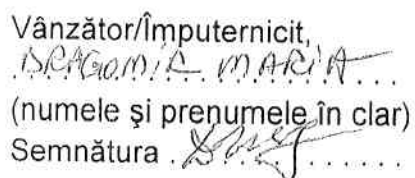 Vânzător/Împuternicit,
DRAGOMIR MARIA
(numele şi prenumele în clar)
Semnătura